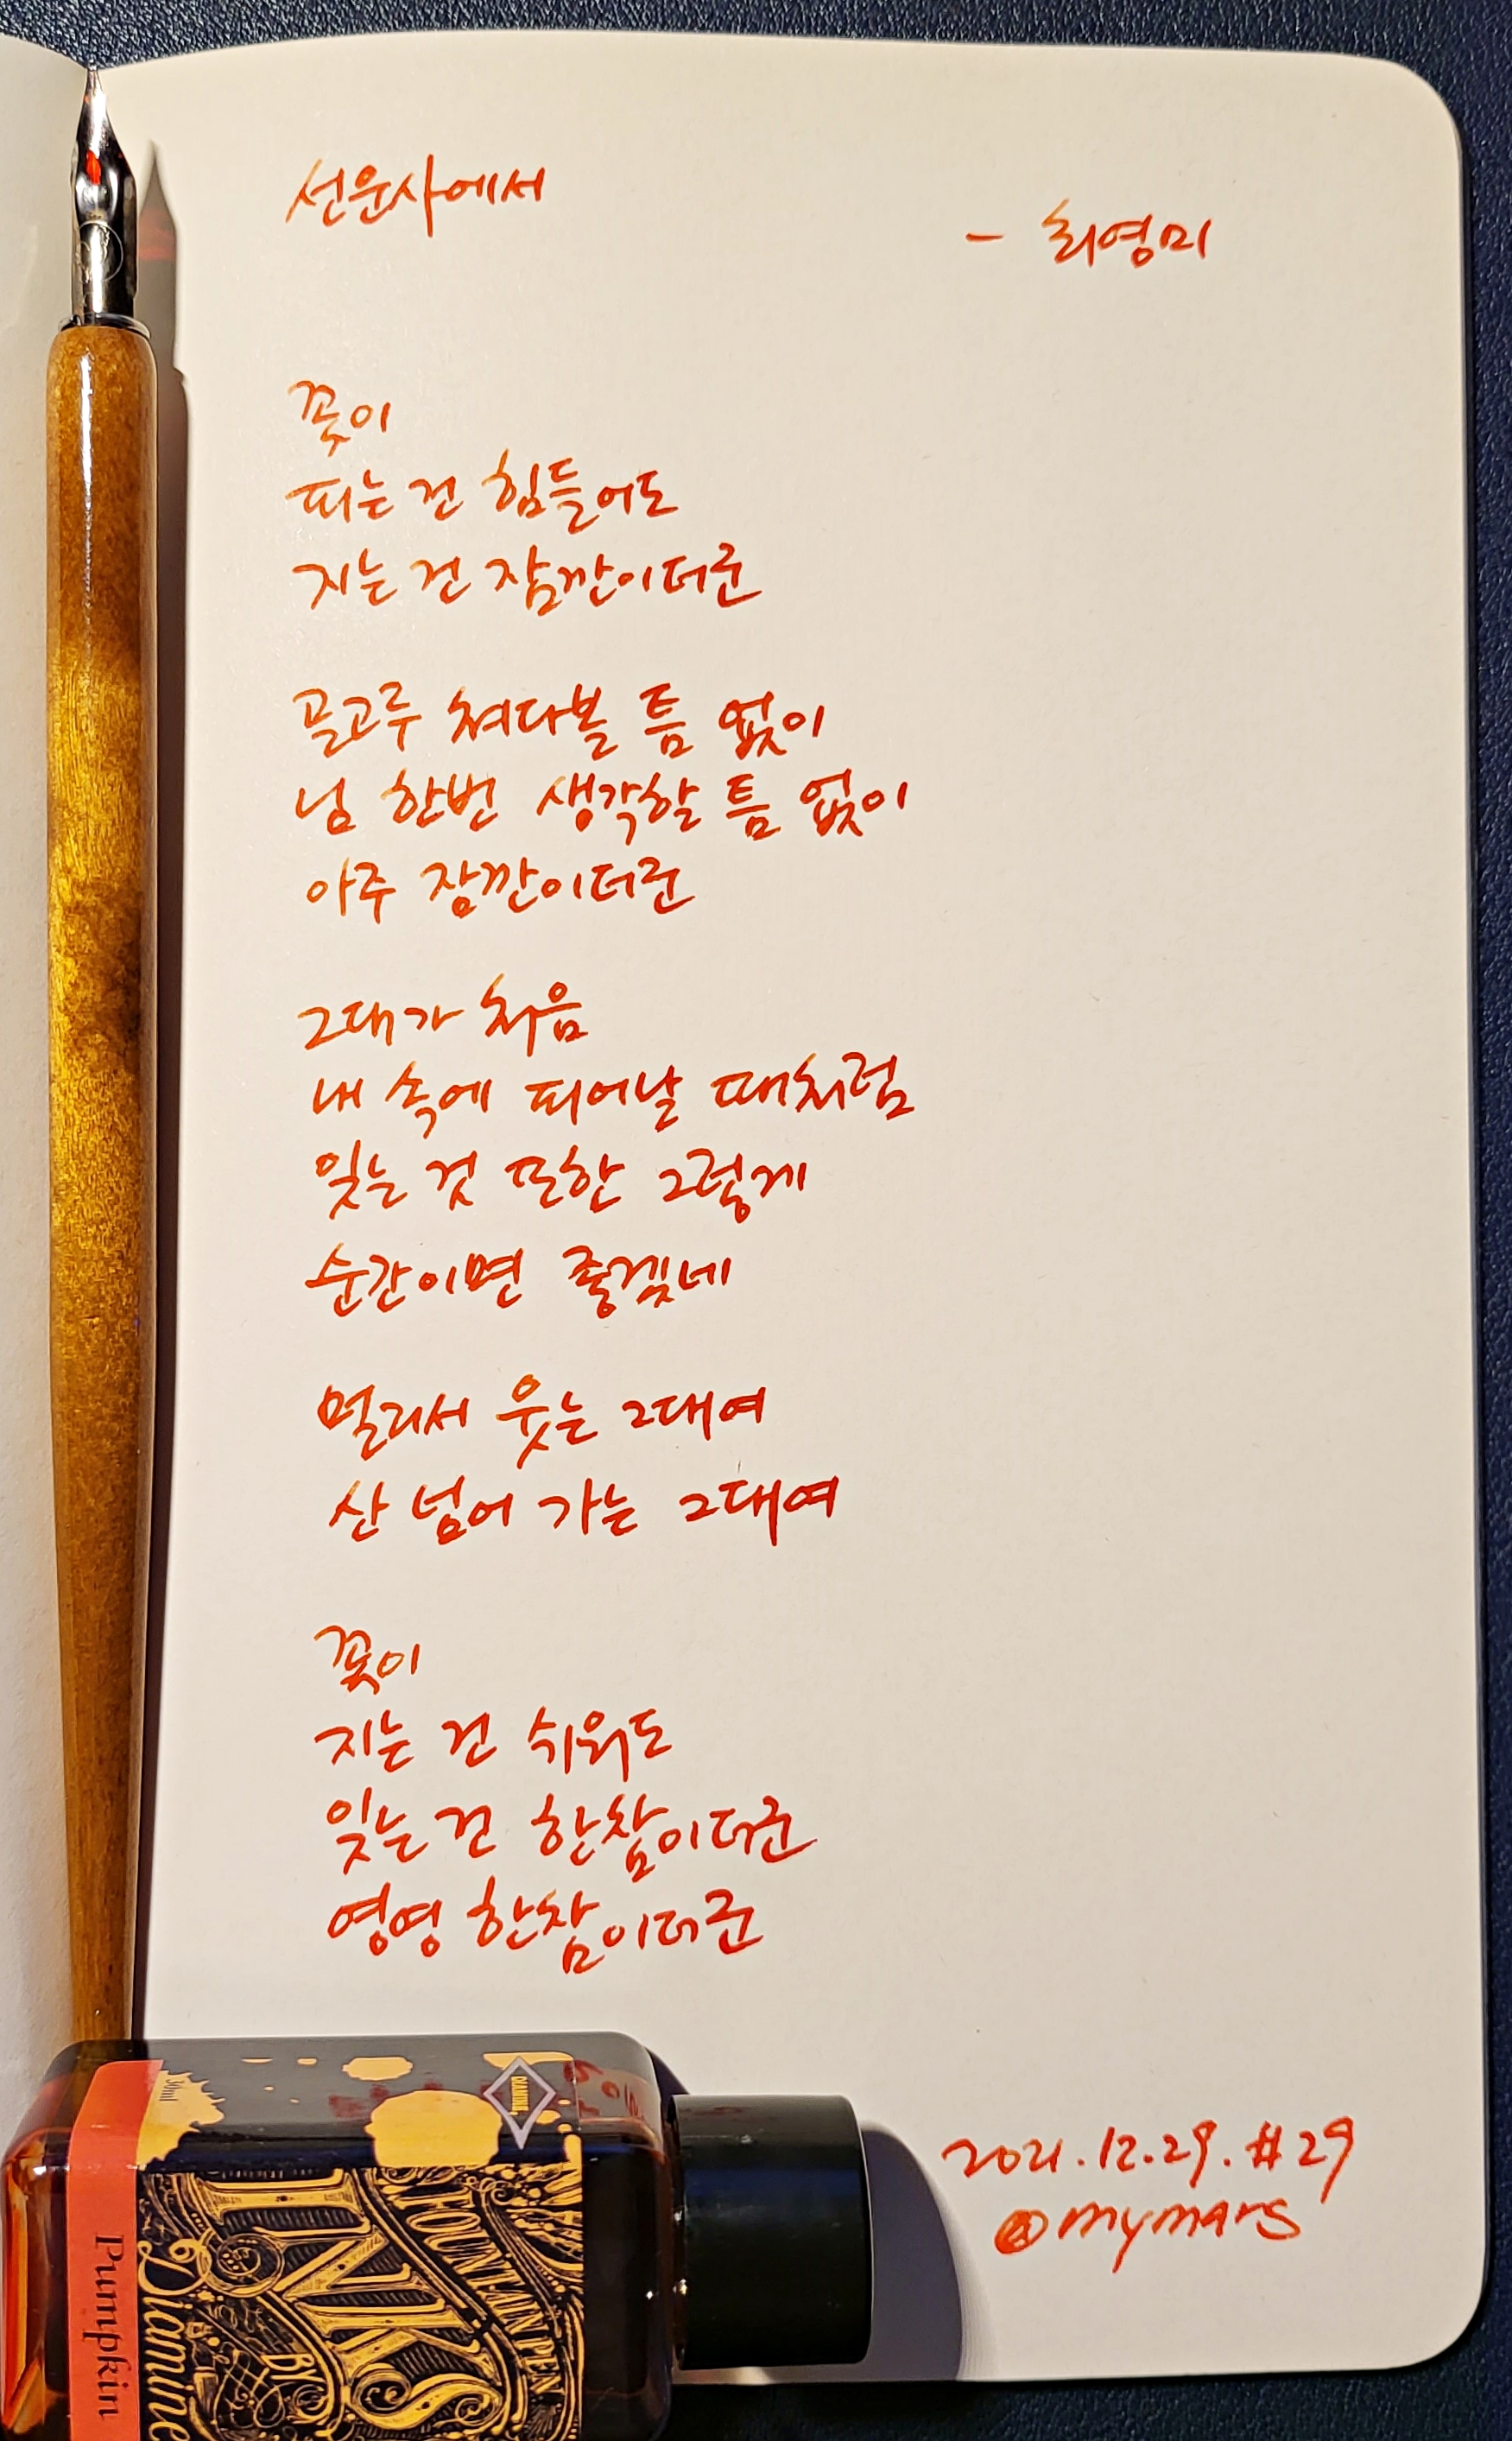 선운사에서
- 최영미
꽃이
피는 건 힘들어도
지는 건 잠깐이더군
골고루 쳐다볼 틈 없이
님 한번 생각할 틈 없이
아주 잠깐이더군
그대가 처음
내 속에 피어날 때처럼
잊는 것 또한 그렇게
순간이면 좋겠네
멀리서 웃는 그대여
산 넘어 가는 그대여
꽃이
지는 건 쉬워도
잊는 건 한참이더군
영영 한참이더군
2021.12.29.#29
@mymars
30ml
DIAMINE
Pumpkin
Diamine
FOUNTAIN PEN
INKS
BY